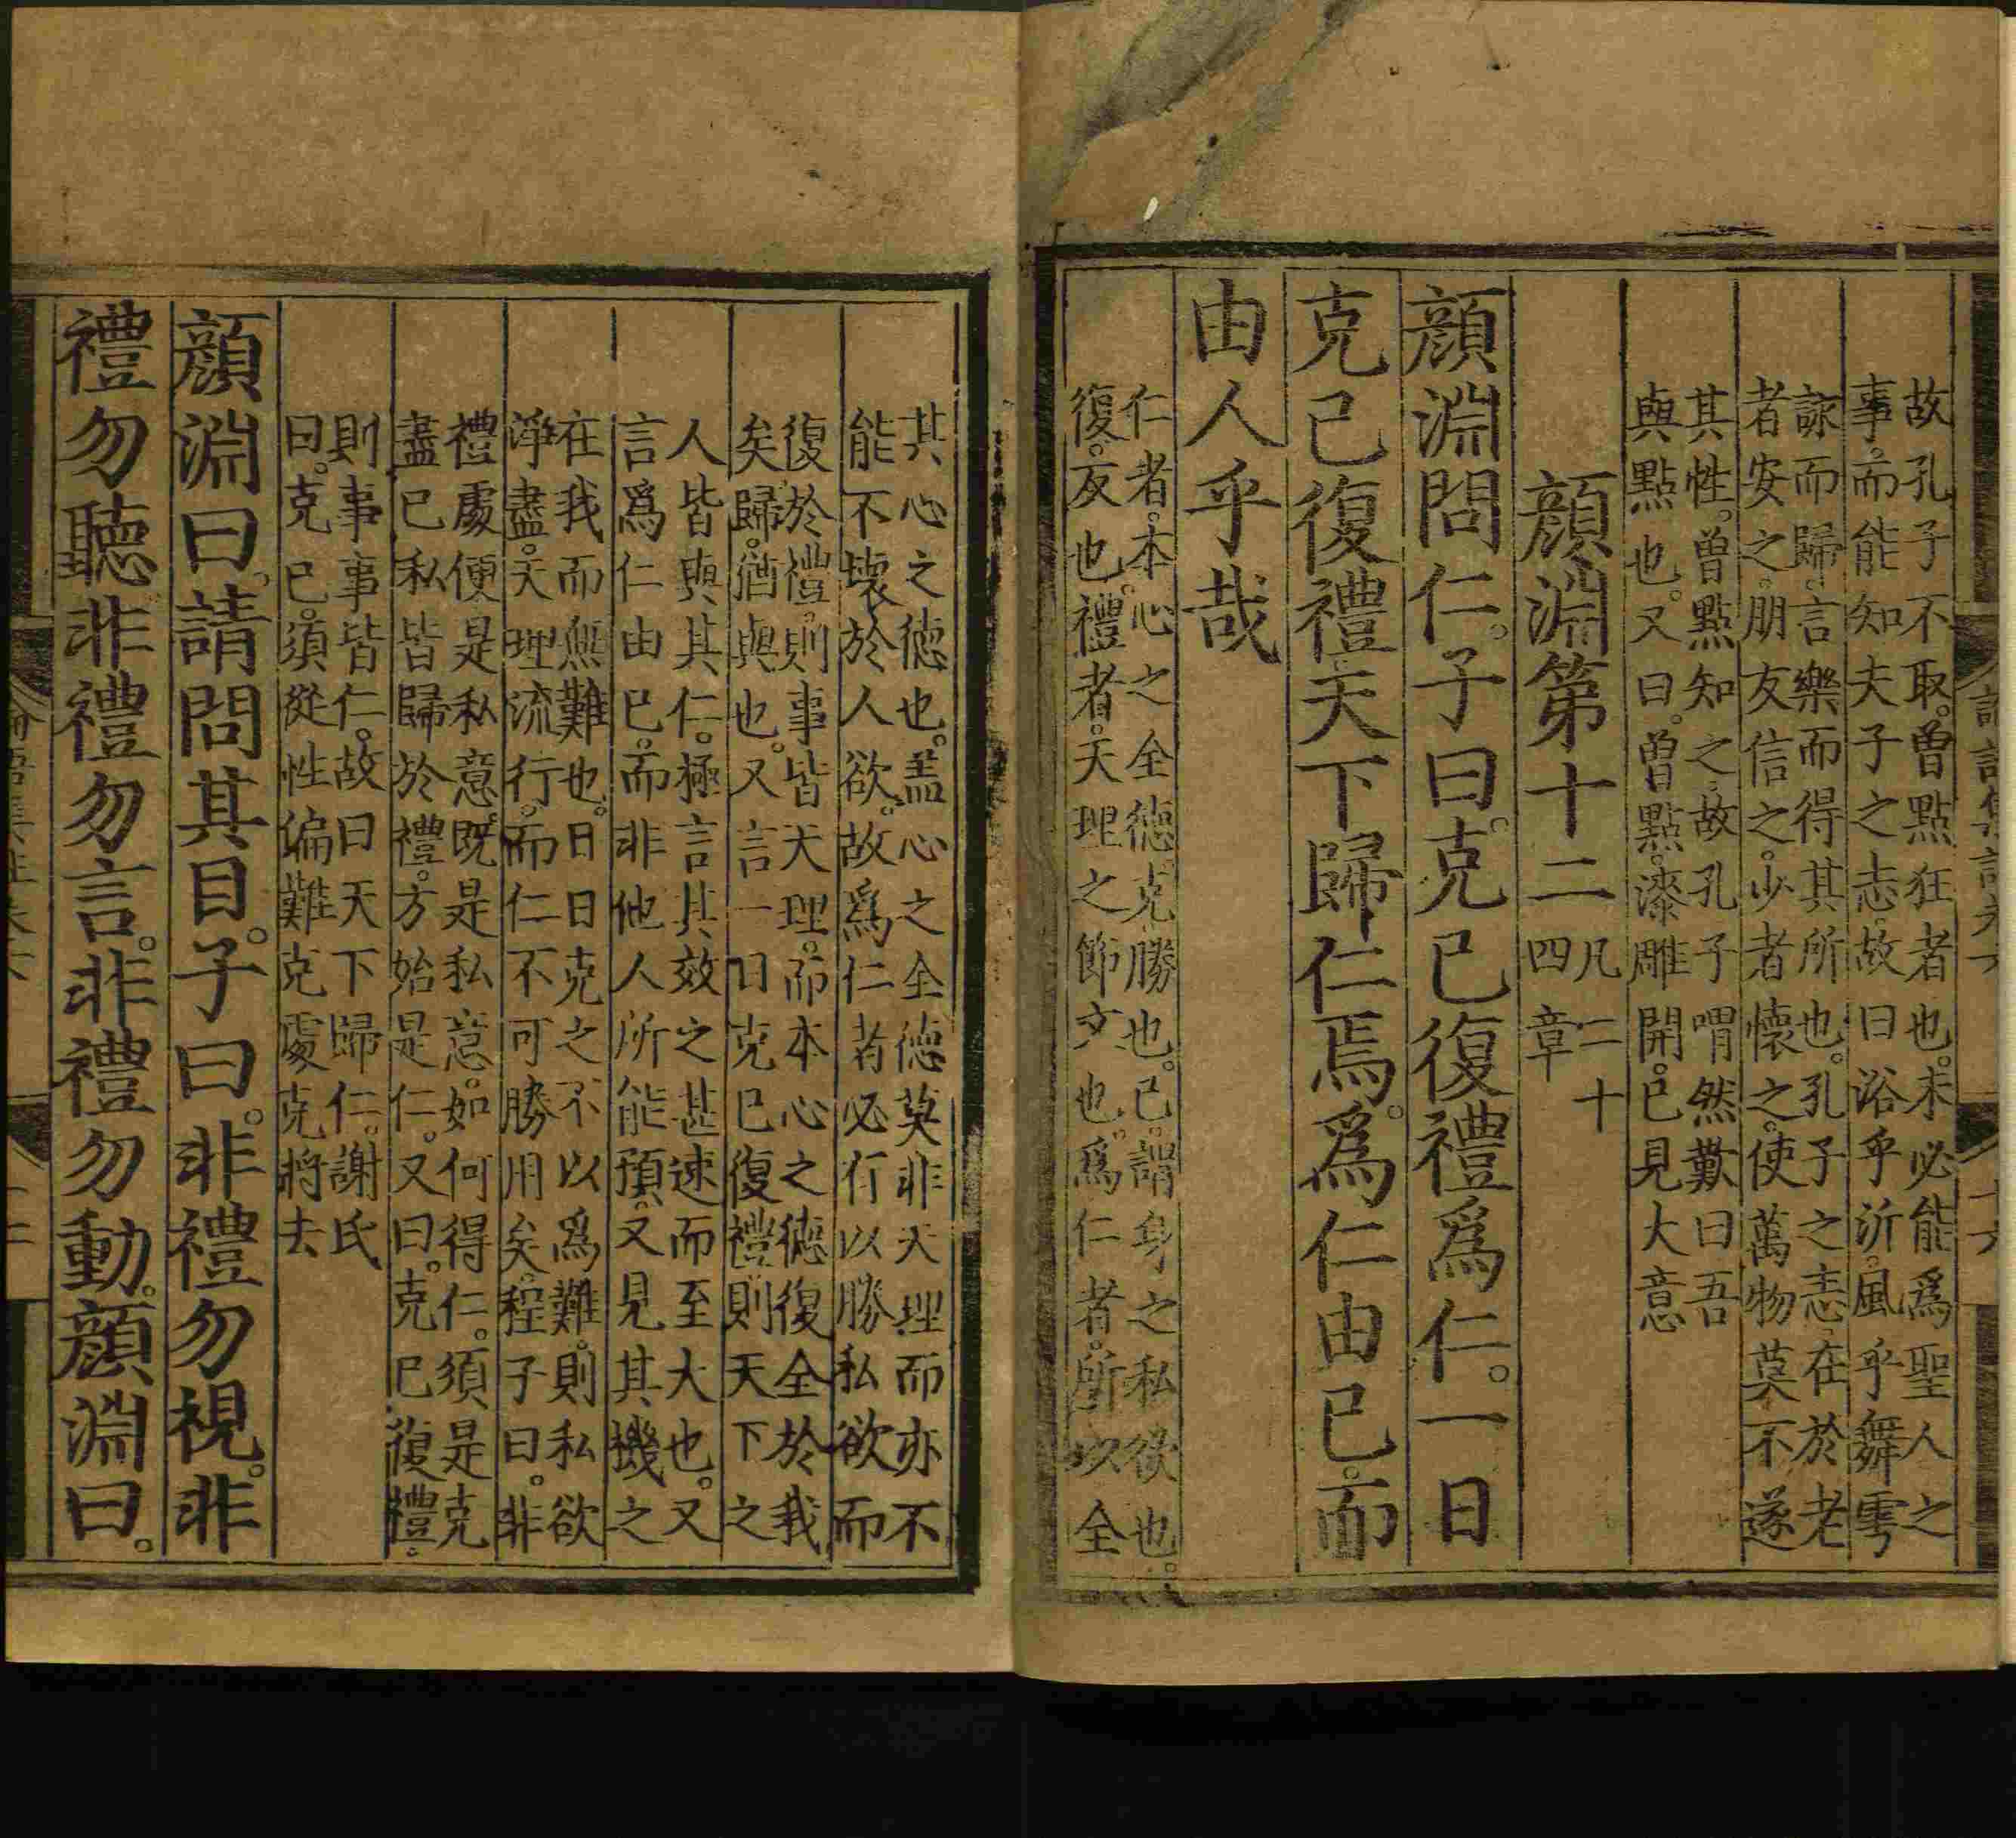 故孔子不取。曾點狂者也。未必能爲聖人之
事。而能知夫子之志。故曰浴乎沂。風乎舞雩
詠而歸。言樂而得其所也。孔子之志。在於老
者安之。朋友信之。少者懷之。使萬物莫不遂
其性。曾點知之。故孔子喟然歎曰吾
與點也。又曰。曾點。漆雕開。已見大意
顏淵第十二
凡二十
四章
顏淵問仁。子曰。克己復禮爲仁。一日
克己復禮天下歸仁焉。爲仁由己。而
由人乎哉
仁者。本心之全德。克勝也。己。謂身之私欲也。
復。反也。禮者。天理之節文也。爲仁者。所以全
其心之德也。蓋心之全德莫非天理而亦不
能不壞於人欲。故爲仁者必有以勝私欲而
復於禮。則事皆天理。而本心之德復全於我
矣。歸。猶與也。又言一日克己復禮則天下之
人皆與其仁。極言其效之甚速而至大也。又
言爲仁由己。而非他人所能預。又見其機之
在我而無難也。日日克之不以爲難。則私欲
淨盡。天理流行。而仁不可勝用矣。程子曰。非
禮處便是私意。既是私意。如何得仁。須是克
盡己私皆歸於禮。方始是仁。又曰。克己復禮。
則事事皆仁。故曰天下歸仁。謝氏
曰。克己。須從性偏難克處克將去
顏淵曰。請問其目。子曰。非禮勿視。非
禮勿聽非禮勿言。非禮勿動。顏淵曰。